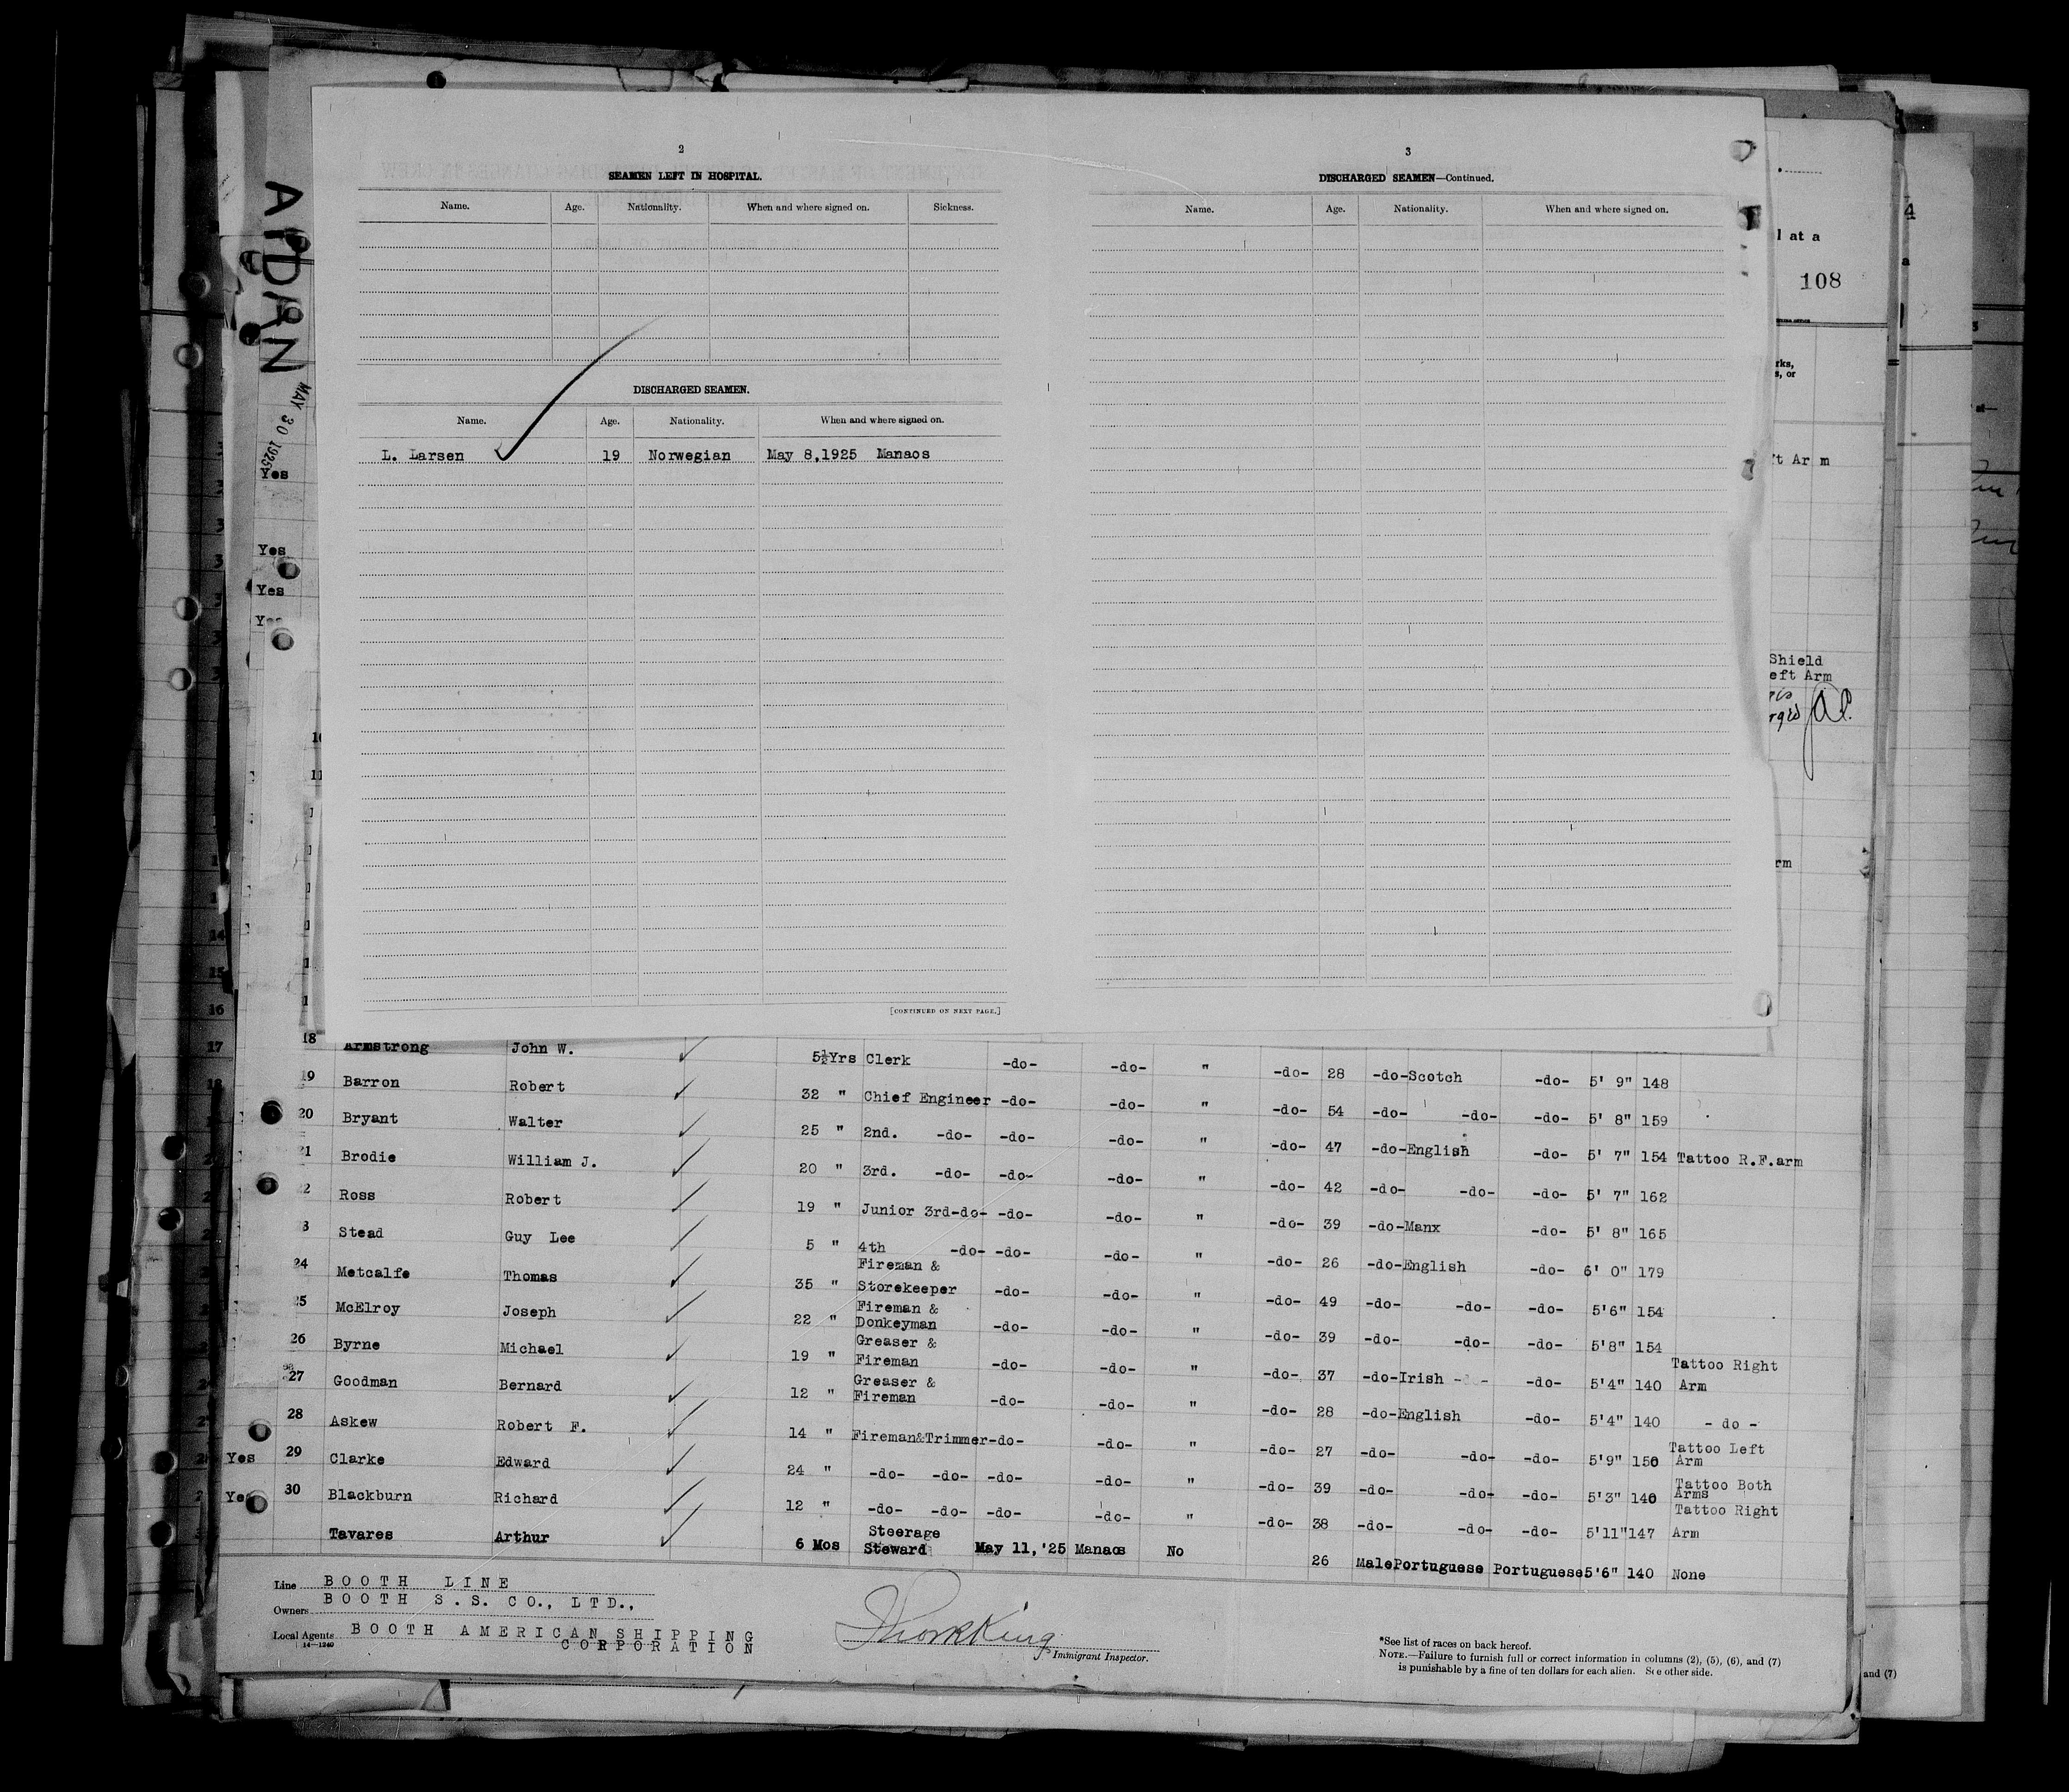 AIDAN
MAY 30 1925
2
SEAMEN LEFT IN HOSPITAL.
Name. Age. Nationality. When and where signed on. Sickness.
DISCHARGED SEAMEN.
Name. Age. Nationality. When and where signed on.
L. Larsen 19 Norwegian May 8,1925 Manaos
[CONTINUED ON NEXT PAGE.]
3
DISCHARGED SEAMEN—Continued.
Name. Age. Nationality. When and where signed on.
4
l at a
108
rks,
s, or
't Ar m
Shield
eft Arm
rm
Yes
Yes
Yes
18 Armstrong John W. 5½Yrs Clerk -do- -do- " -do- 28 -do- Scotch -do- 5' 9" 148
19 Barron Robert 32 " Chief Engineer -do- -do- " -do- 54 -do- -do- -do- 5' 8" 159
20 Bryant Walter 25 " 2nd. -do- -do- -do- " -do- 47 -do- English -do- 5' 7" 154 Tattoo R.F.arm
21 Brodie William J. 20 " 3rd. -do- -do- -do- " -do- 42 -do- -do- -do- 5' 7" 162
2 Ross Robert 19 " Junior 3rd-do- -do- -do- " -do- 39 -do- Manx -do- 5' 8" 165
3 Stead Guy Lee 5 " 4th -do- -do- -do- " -do- 26 -do- English -do- 6' 0" 179
24 Metcalfe Thomas 35 " Fireman & Storekeeper -do- -do- " -do- 49 -do- -do- -do- 5'6" 154
25 McElroy Joseph 22 " Fireman & Donkeyman -do- -do- " -do- 39 -do- -do- -do- 5'8" 154
26 Byrne Michael 19 " Greaser & Fireman -do- -do- " -do- 37 -do- Irish -do- 5'4" 140 Tattoo Right Arm
27 Goodman Bernard 12 " Greaser & Fireman -do- -do- " -do- 28 -do- English -do- 5'4" 140 - do -
28 Askew Robert F. 14 " Fireman&Trimmer -do- -do- " -do- 27 -do- -do- -do- 5'9" 150 Tattoo Left Arm
Yes 29 Clarke Edward 24 " -do- -do- -do- -do- " -do- 39 -do- -do- -do- 5'3" 140 Tattoo Both Arms
Yes 30 Blackburn Richard 12 " -do- -do- -do- -do- " -do- 38 -do- -do- -do- 5'11" 147 Tattoo Right Arm
Tavares Arthur 6 Mos Steerage Steward May 11,'25 Manaos No 26 Male Portuguese Portuguese 5'6" 140 None
Line BOOTH LINE
Owners BOOTH S.S. CO., LTD.,
Local Agents BOOTH AMERICAN SHIPPING
CORPORATION
14—1240
Immigrant Inspector.
*See list of races on back hereof.
NOTE.—Failure to furnish full or correct information in columns (2), (5), (6), and (7)
is punishable by a fine of ten dollars for each alien. See other side.
and (7)